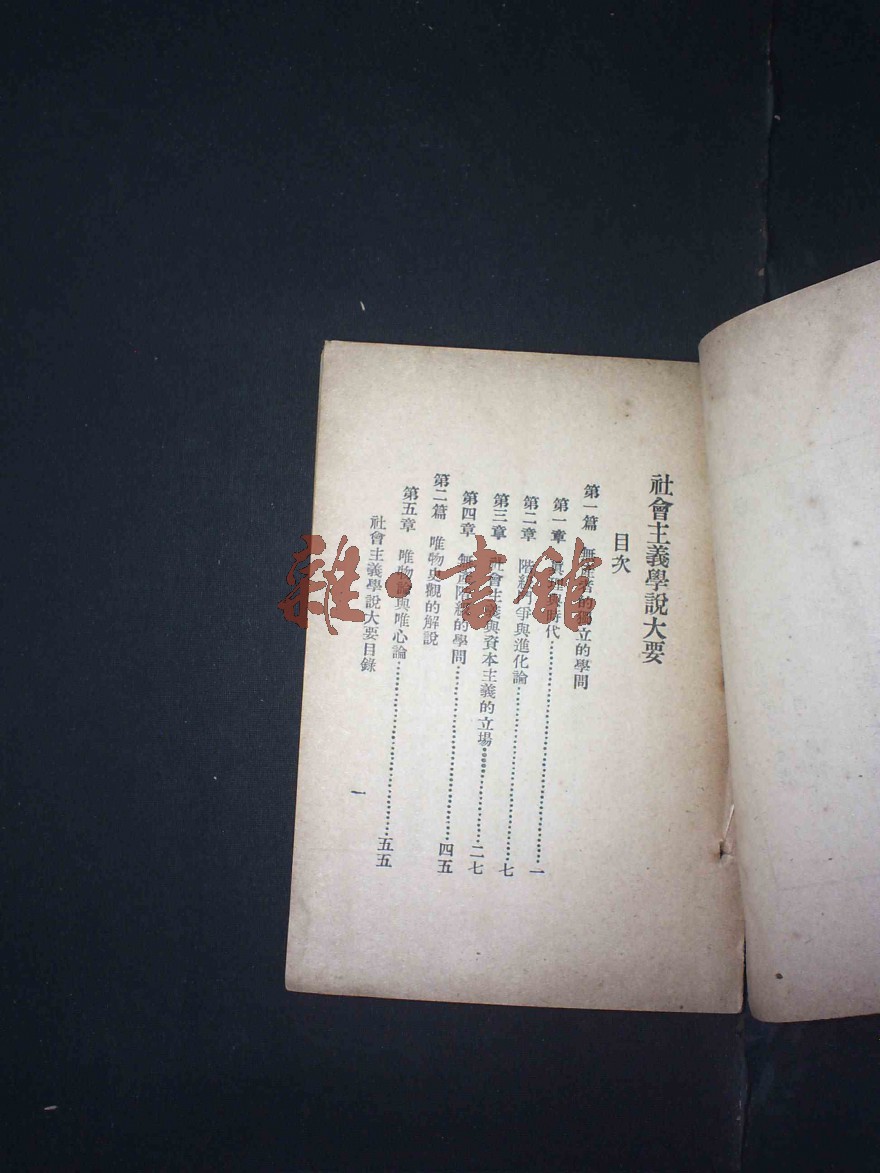 社會主義學說大要
目次
第一篇 無產者的獨立的學問
第一章 時代……一
第二章 階級鬥爭與進化論……七
第三章 社會主義與資本主義的立場……二七
第四章 無產階級的學問……四五
第二篇 唯物史觀的解說
第五章 唯物論與唯心論……五五
社會主義學說大要目錄
一
雜·書館